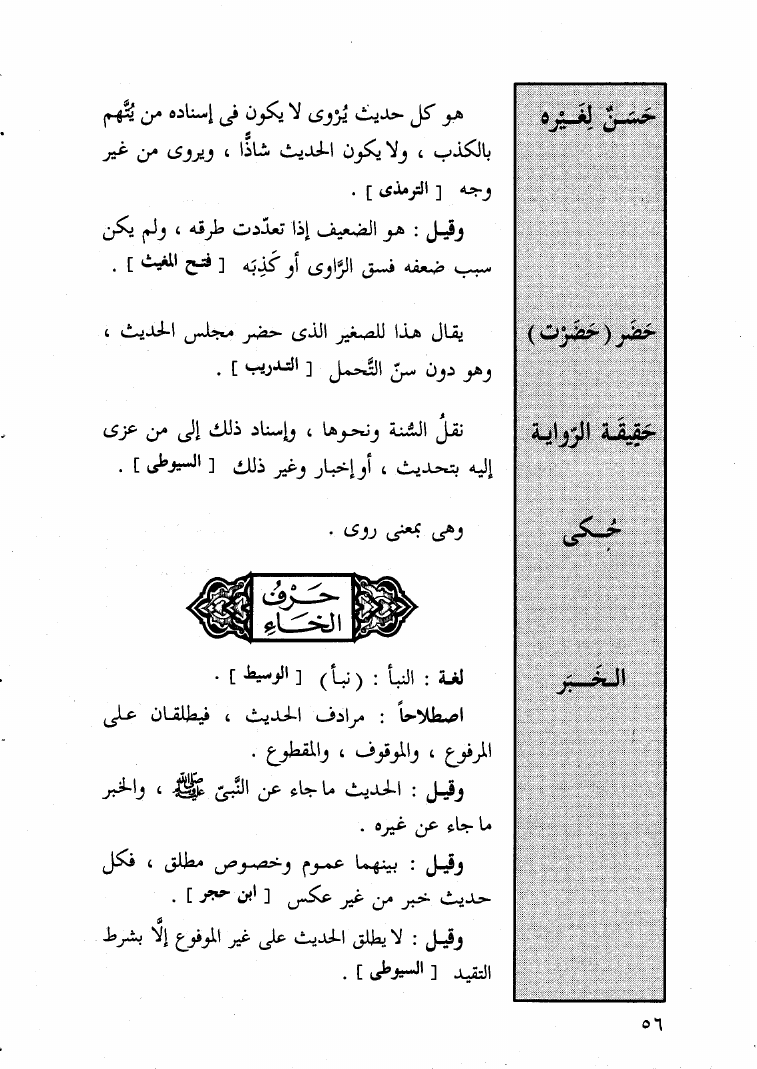 حَسَنٌ لِغَيْرِه
هو كل حديث يُرْوى لا يكون فى إسناده من يُتَّهم
بالكذب ، ولا يكون الحديث شاذًّا ، ويروى من غير
وجه [ الترمذى ] .
وقيل : هو الضعيف إذا تعدّدت طرقه ، ولم يكن
سبب ضعفه فسق الرَّاوى أو كَذِبَه [ فتح المغيث ] .
حَضَر ( حَضَرْت )
يقال هذا للصغير الذى حضر مجلس الحديث ،
وهو دون سنّ التَّحمل [ التدريب ] .
حَقِيقَة الرِّواية
نقلُ السُّنة ونحوها ، وإسناد ذلك إلى من عزى
إليه بتحديث ، أو إخبار وغير ذلك [ السيوطى ] .
حُكى
وهى بمعنى روى .
حَرْفُ
الخَاءِ
الخَبَر
لغة : النبأ : ( نبأ ) [ الوسيط ] .
اصطلاحاً : مرادف الحديث ، فيطلقان على
المرفوع ، والموقوف ، والمقطوع .
وقيل : الحديث ما جاء عن النَّبىّ ﷺ ، والخبر
ما جاء عن غيره .
وقيل : بينهما عموم وخصوص مطلق ، فكل
حديث خبر من غير عكس [ ابن حجر ] .
وقيل : لا يطلق الحديث على غير الموفوع إلَّا بشرط
التقيد [ السيوطى ] .
٥٦